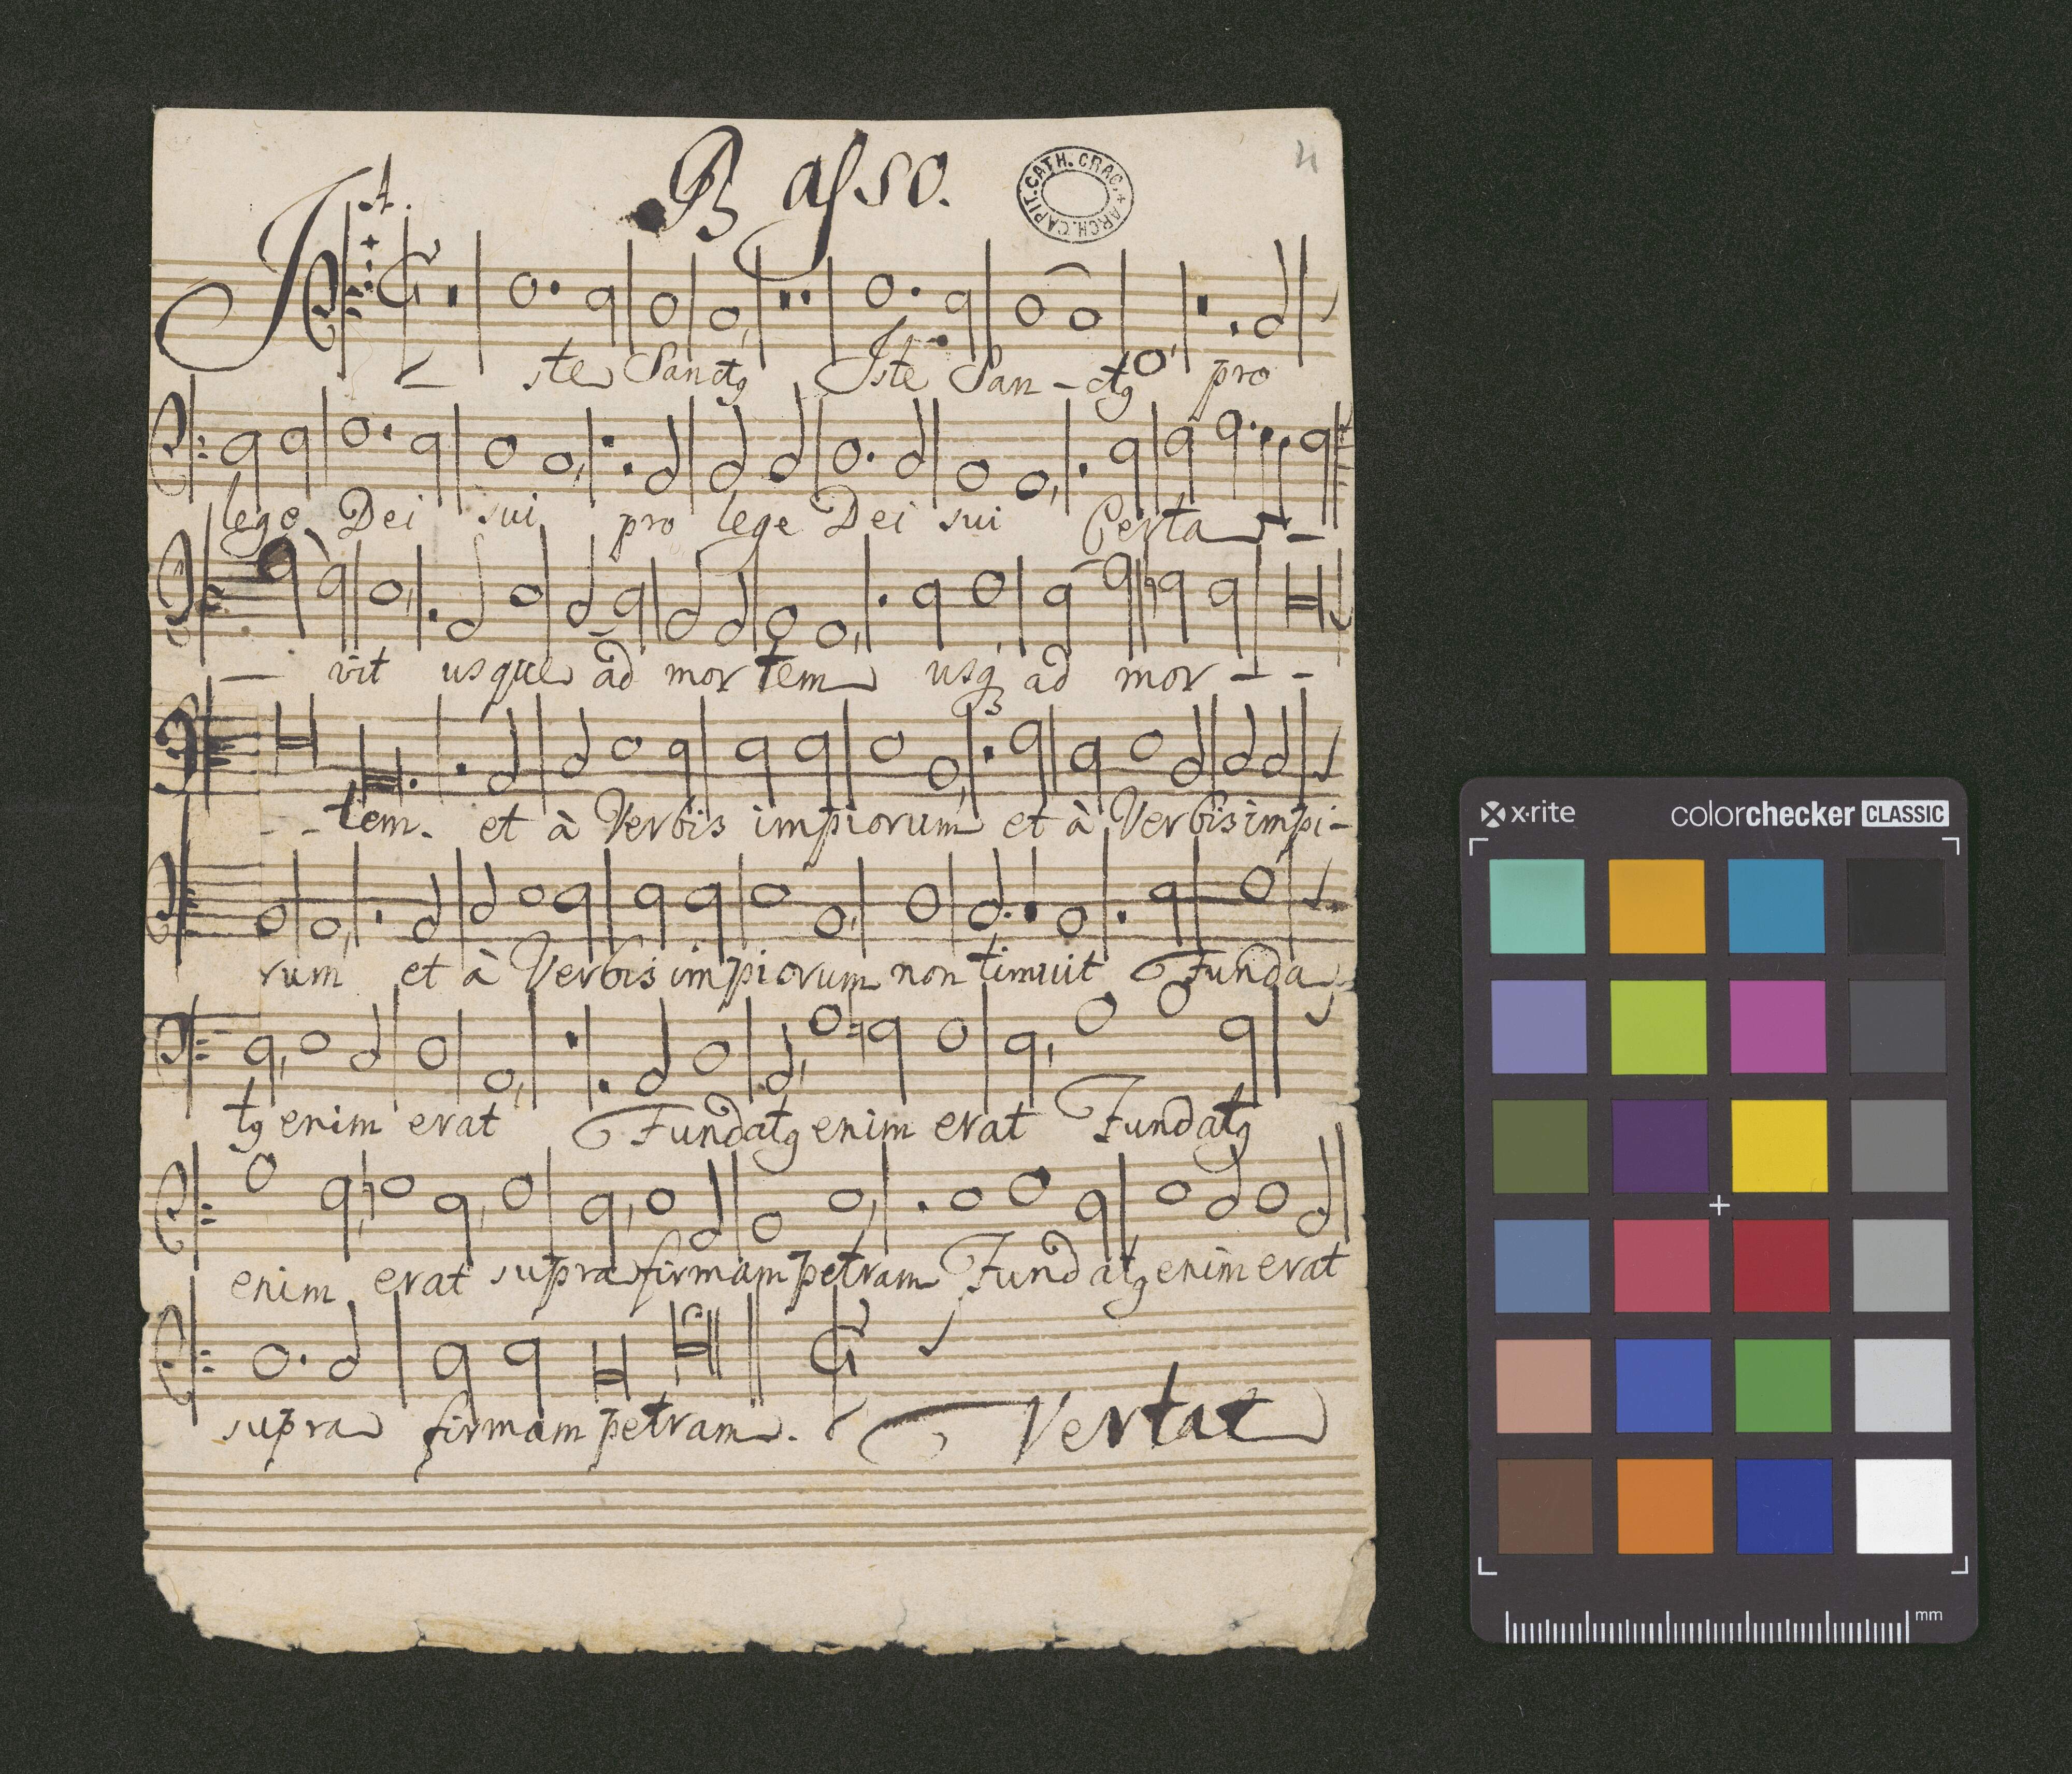 Basso.
ARCH. CAPIT. CATH. CRAC.
A.
Iste Sanctꝯ Iste San - ctꝯ pro
lege Dei sui pro lege Dei sui Certa - -
- vit usque ad mortem usqꝫ ad mor - -
- - tem. et à Verbis impiorum et à Verbis impi-
rum et à Verbis impiorum non timuit Funda
tꝯ enim erat Fundatꝯ enim erat Fundatꝯ
enim erat supra firmam petram Fundatꝯ enim erat
supra firmam petram.
Vertat
x·rite colorchecker CLASSIC
mm